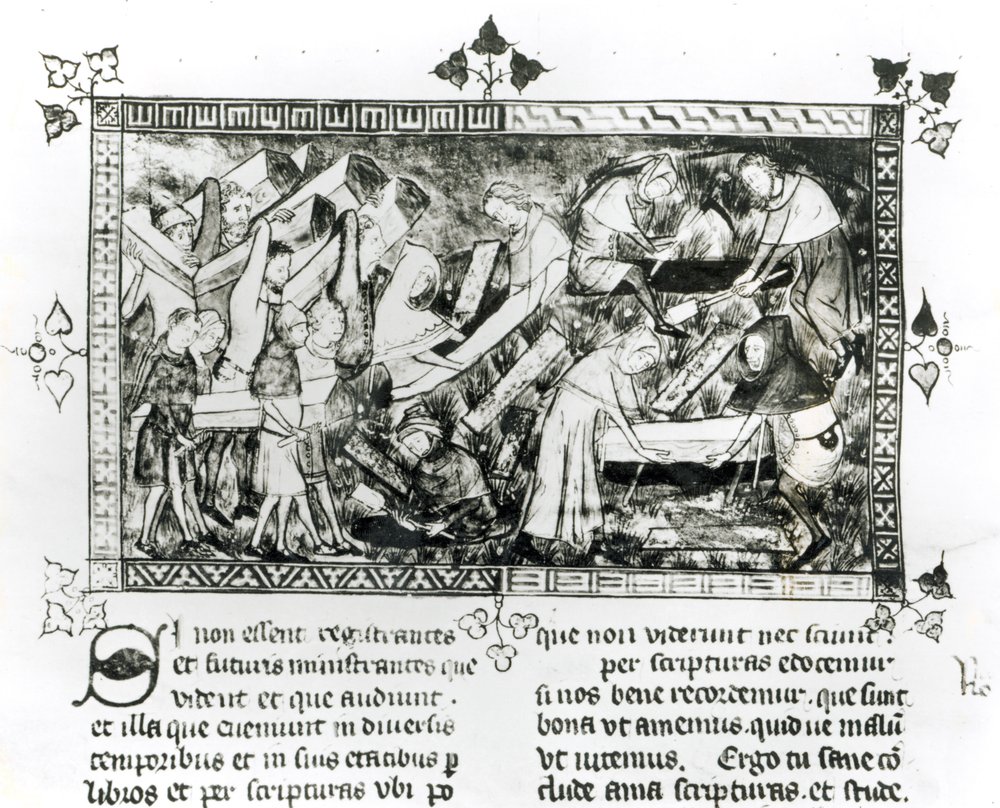 Si non essent registrantes
et futuris ministrantes que
vident et que audiunt.
et illa que eueniunt in diversis
temporibus et in suis etatibus ꝑ
libros et per scripturas vbi po
que non viderunt nec sciunt:
per scripturas edocemur
si nos bene recordemur. que sunt
bona vt amemus. quid ue malū
vt uitemus. Ergo tu sane cō
clude ama scripturas. et stude.